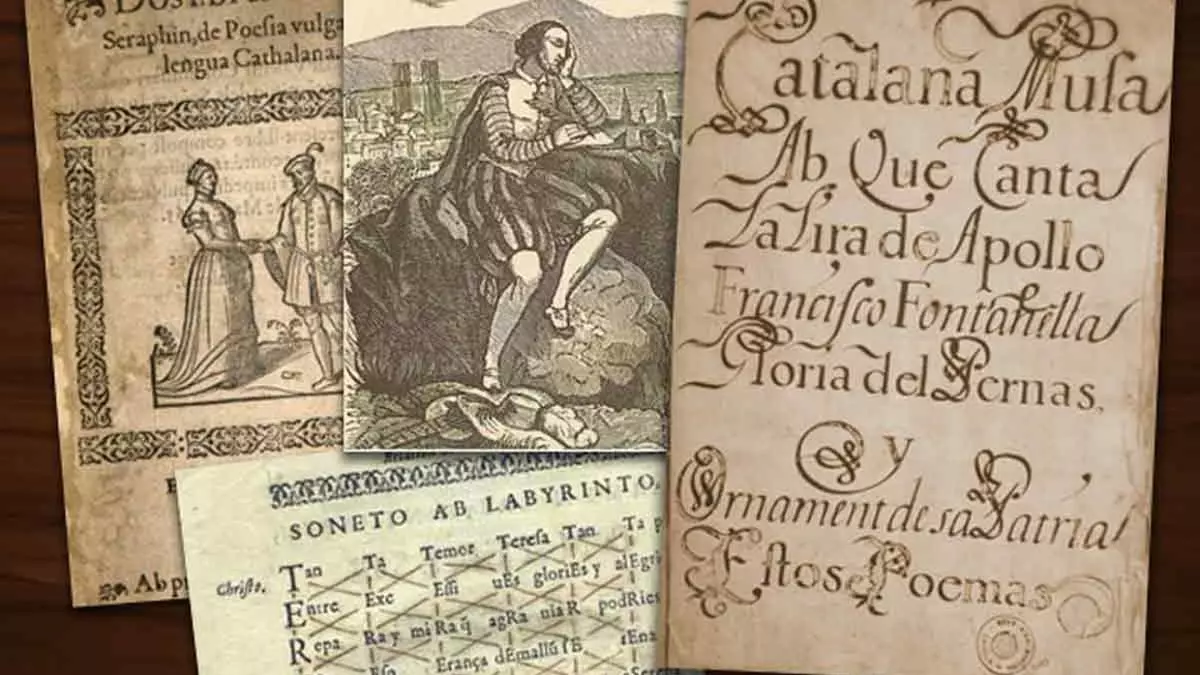 Seraphin, de Poeſia vulga
lengua Cathalana.
Ab p
SONETO AB LABYRINTO,
Chriſto, Tan Ta Temor Tereſa Tan Ta
Entre Exc Eſſi uEs gloriEs y alEgri
Repa Ra y mi Ra q̃ agRa uiaR podRies
Erança
Catalana Muſa
Ab Que Canta
La Lira de Apollo
Franciſco Fontanella
Gloria del Pernas,
y
Ornament de sa Patria
Eſtos Poemas